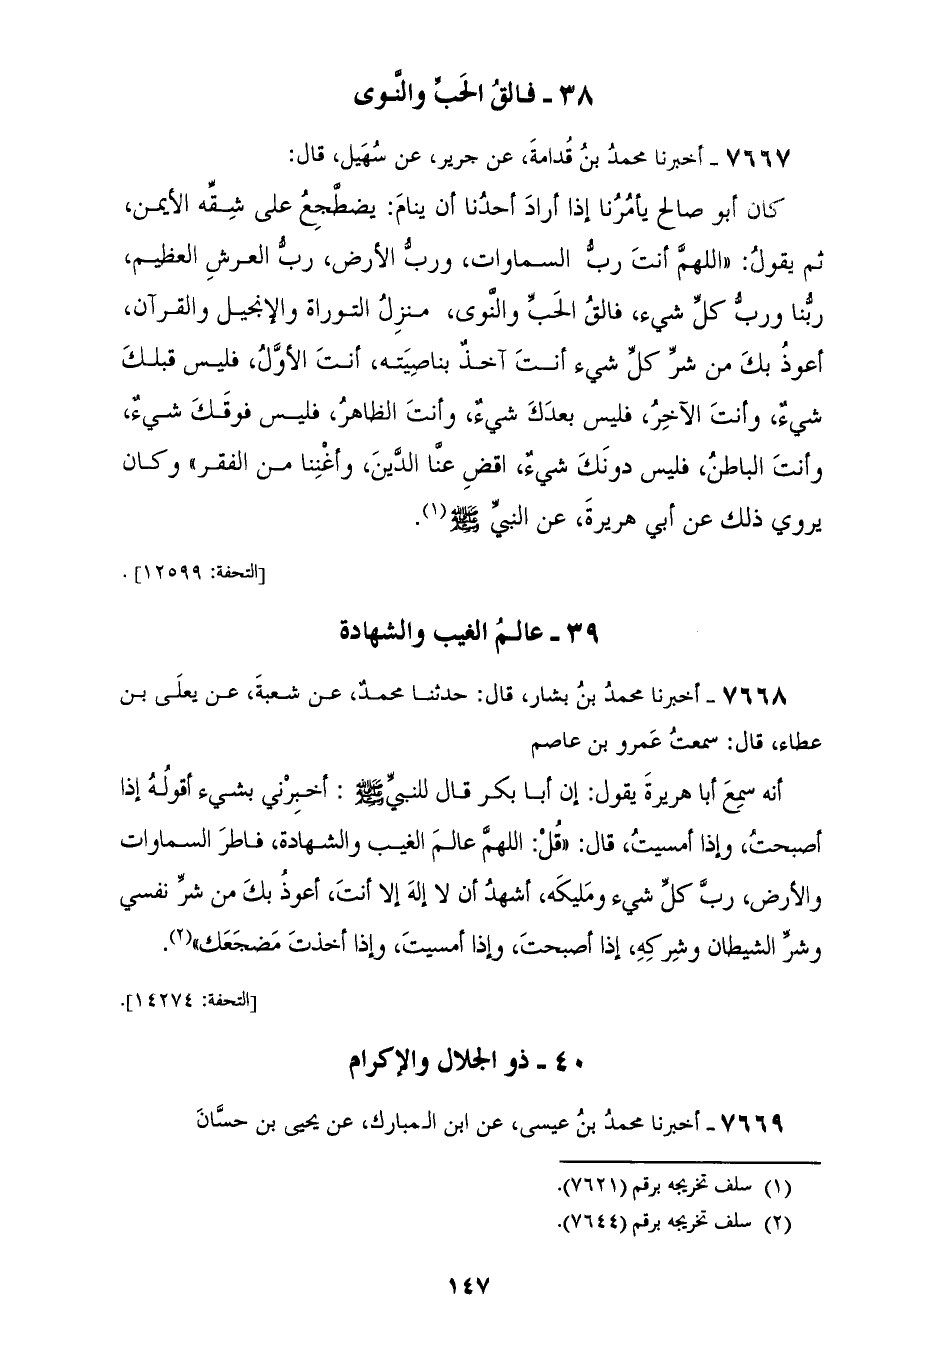 ٣٨ ـ فالقُ الحَبِّ والنَّوى
٧٦٦٧ ـ أخبرنا محمدُ بنُ قُدامةَ، عن جرير، عن سُهَيل، قال:
كان أبو صالح يأمُرُنا إذا أرادَ أحدُنا أن ينامَ: يضطَّجِعُ على شِقِّه الأيمن،
ثم يقولُ: «اللهمَّ أنتَ ربُّ السماوات، وربُّ الأرض، ربُّ العرشِ العظيم،
ربُّنا وربُّ كلِّ شيء، فالقُ الحَبِّ والنَّوى، منزِلُ التوراة والإنجيل والقرآن،
أعوذُ بكَ من شرِّ كلِّ شيء أنتَ آخذٌ بناصِيَته، أنتَ الأوَّلُ، فليس قبلكَ
شيءٌ، وأنتَ الآخِرُ، فليس بعدَكَ شيءٌ، وأنتَ الظاهرُ، فليس فوقَكَ شيءٌ،
وأنتَ الباطنُ، فليس دونَكَ شيءٌ، اقضِ عنَّا الدَّينَ، وأغْنِنا من الفقر» وكان
يروي ذلك عن أبي هريرةَ، عن النبيِّ ﷺ(١).
[التحفة: ١٢٥٩٩].
٣٩ ـ عالمُ الغيب والشهادة
٧٦٦٨ ـ أخبرنا محمدُ بنُ بشار، قال: حدثنا محمدٌ، عن شعبةَ، عن يعلَى بن
عطاء، قال: سمعتُ عَمرو بن عاصم
أنه سمِعَ أبا هريرةَ يقول: إن أبا بكر قال للنبيِّ ﷺ : أخبِرْني بشيء أقولُهُ إذا
أصبحتُ، وإذا أمسيتُ، قال: «قُلْ: اللهمَّ عالمَ الغيب والشهادة، فاطرَ السماوات
والأرض، ربَّ كلِّ شيء ومَليكَه، أشهدُ أن لا إلهَ إلا أنتَ، أعوذُ بكَ من شرِّ نفسي
وشرِّ الشيطان وشِركِهِ، إذا أصبحتَ، وإذا أمسيتَ، وإذا أخذتَ مَضجَعَك»(٢).
[التحفة: ١٤٢٧٤].
٤٠ ـ ذو الجلال والإكرام
٧٦٦٩ ـ أخبرنا محمدُ بنُ عيسى، عن ابن المبارك، عن يحيى بن حسَّانَ
(١) سلف تخريجه برقم (٧٦٢١).
(٢) سلف تخريجه برقم (٧٦٤٤).
١٤٧